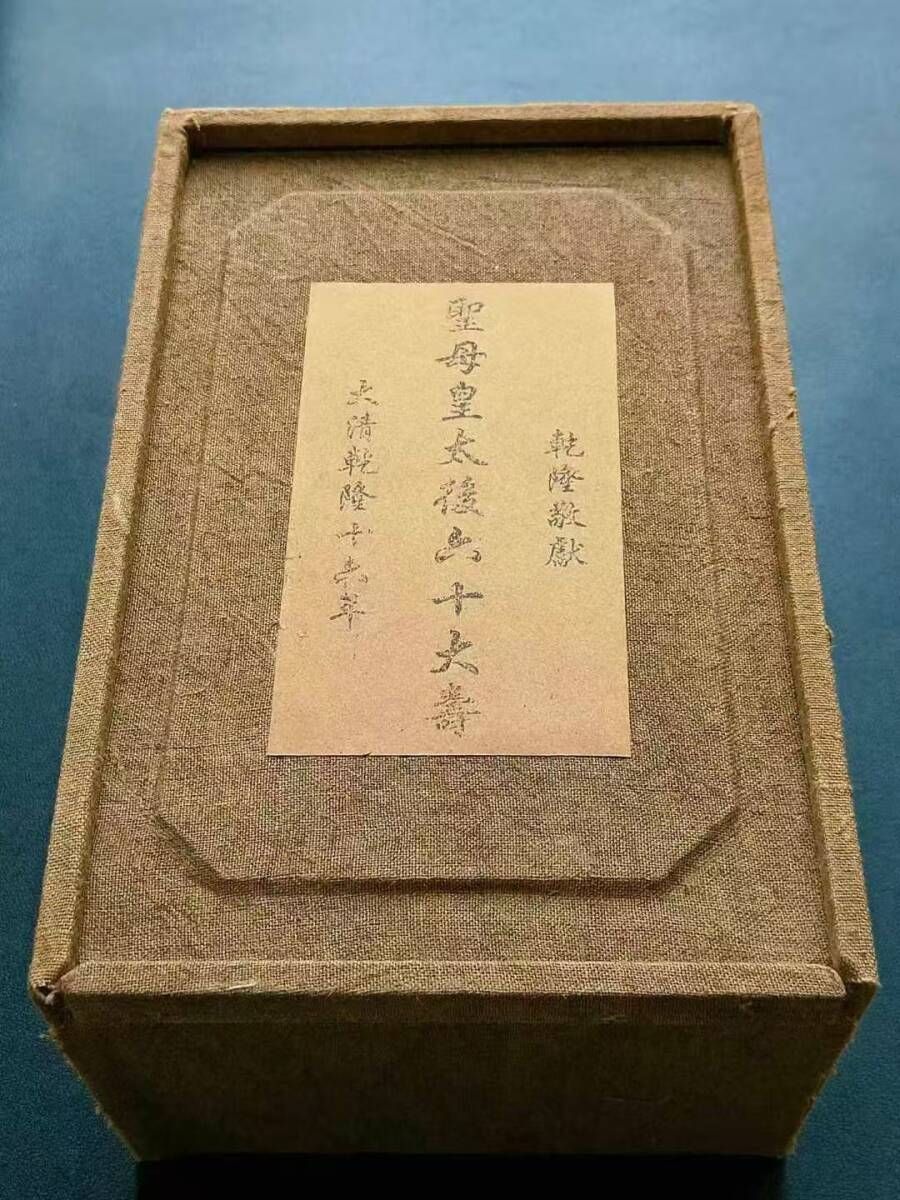 乾隆敬獻
聖母皇太後六十大壽
大清乾隆十六年